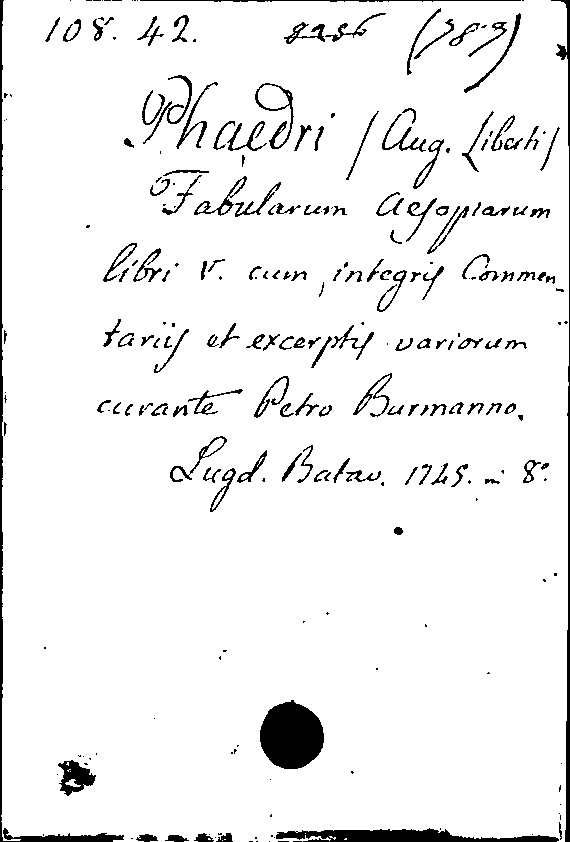 108. 42. (383)
Phaedri / Aug. Liberti /
Fabularum Aesopiarum
libri V. cum integris Commen_
tariis et excerptis variorum
curante Petro Burmanno.
Lugd. Batav. 1745. in 8°.